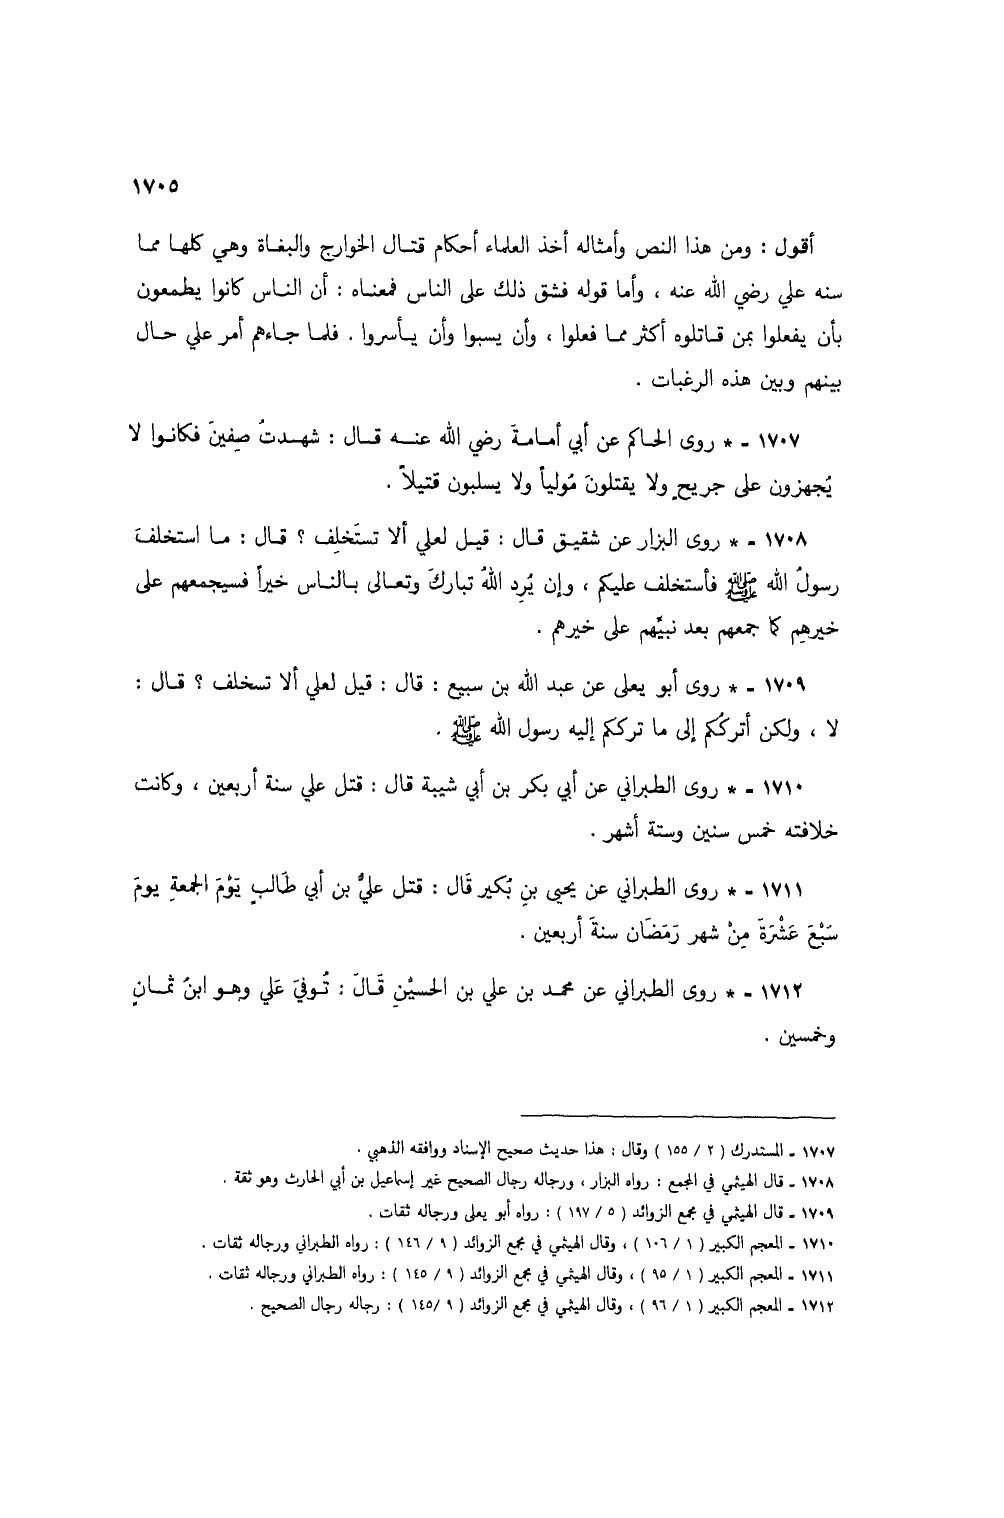 ١٧٠٥
أقول : ومن هذا النص وأمثاله أخذ العلماء أحكام قتـال الخوارج والبغـاة وهي كلهـا ممـا
سنه علي رضي الله عنه ، وأما قوله فشق ذلك على الناس فمعنـاه : أن النـاس كانوا يطمعون
بأن يفعلوا بمن قـاتلوه أكثر ممـا فعلوا ، وأن يسبوا وأن يـأسروا . فلمـا جـاءهم أمر علي حـال
بينهم وبين هذه الرغبات .
١٧٠٧ - * روى الحـاكم عن أبي أمـامـةَ رضي الله عنـه قـال : شهـدتُ صِفينَ فكانـوا لا
يُجهزون على جريحٍ ولا يقتلونَ مُولياً ولا يسلبون قتيلاً .
١٧٠٨ - * روى البزار عن شقيـق قـال : قيـل لعلي ألا تستَخلِف ؟ قـال : مـا استخلفَ
رسولُ الله ﷺ فأستخلف عليكم ، وإن يُرِد اللهُ تباركَ وتعـالى بـالنـاس خيراً فسيجمعهم على
خيرهِم كما جمعهم بعد نبيِّهم على خيرهم .
١٧٠٩ - * روى أبو يعلى عن عبد الله بن سبيع : قال : قيل لعلي ألا تسخلف ؟ قـال :
لا ، ولكن أتركُكم إلى ما تركـكم إليه رسول الله ﷺ .
١٧١٠ - * روى الطبراني عن أبي بكر بن أبي شيبة قال : قتل علي سنة أربعين ، وكانت
خلافته خمس سنين وستة أشهر .
١٧١١ - * روى الطبراني عن يحيى بنِ بُكير قَال : قتـل عليُّ بن أبي طَالبٍ يَوْمَ الجمعةِ يومَ
سَبْعَ عَشْرَةَ مِنْ شهر رَمَضَان سنةَ أربعين .
١٧١٢ - * روى الطبراني عن محمـد بن علي بن الحسيْنِ قَـالَ : تُـوفيَ عَلي وهـو ابنُ ثمـانٍ
وخمسين .
١٧٠٧ - المستدرك ( ٢ / ١٥٥ ) وقال : هذا حديث صحيح الإسناد ووافقه الذهبي .
١٧٠٨ - قال الهيثمي في المجمع : رواه البزار ، ورجاله رجال الصحيح غير إسماعيل بن أبي الحارث وهو ثقة .
١٧٠٩ - قال الهيثمي في مجمع الزوائد ( ٥ / ١٩٧ ) : رواه أبو يعلى ورجاله ثقات .
١٧١٠ - المعجم الكبير ( ١ / ١٠٦ ) ، وقال الهيثمي في مجمع الزوائد ( ٩ / ١٤٦ ) : رواه الطبراني ورجاله ثقات .
١٧١١ - المعجم الكبير ( ١ / ٩٥ ) ، وقال الهيثمي في مجمع الزوائد ( ٩ / ١٤٥ ) : رواه الطبراني ورجاله ثقات .
١٧١٢ - المعجم الكبير ( ١ / ٩٦ ) ، وقال الهيثمي في مجمع الزوائد ( ٩ /١٤٥ ) : رجاله رجال الصحيح .